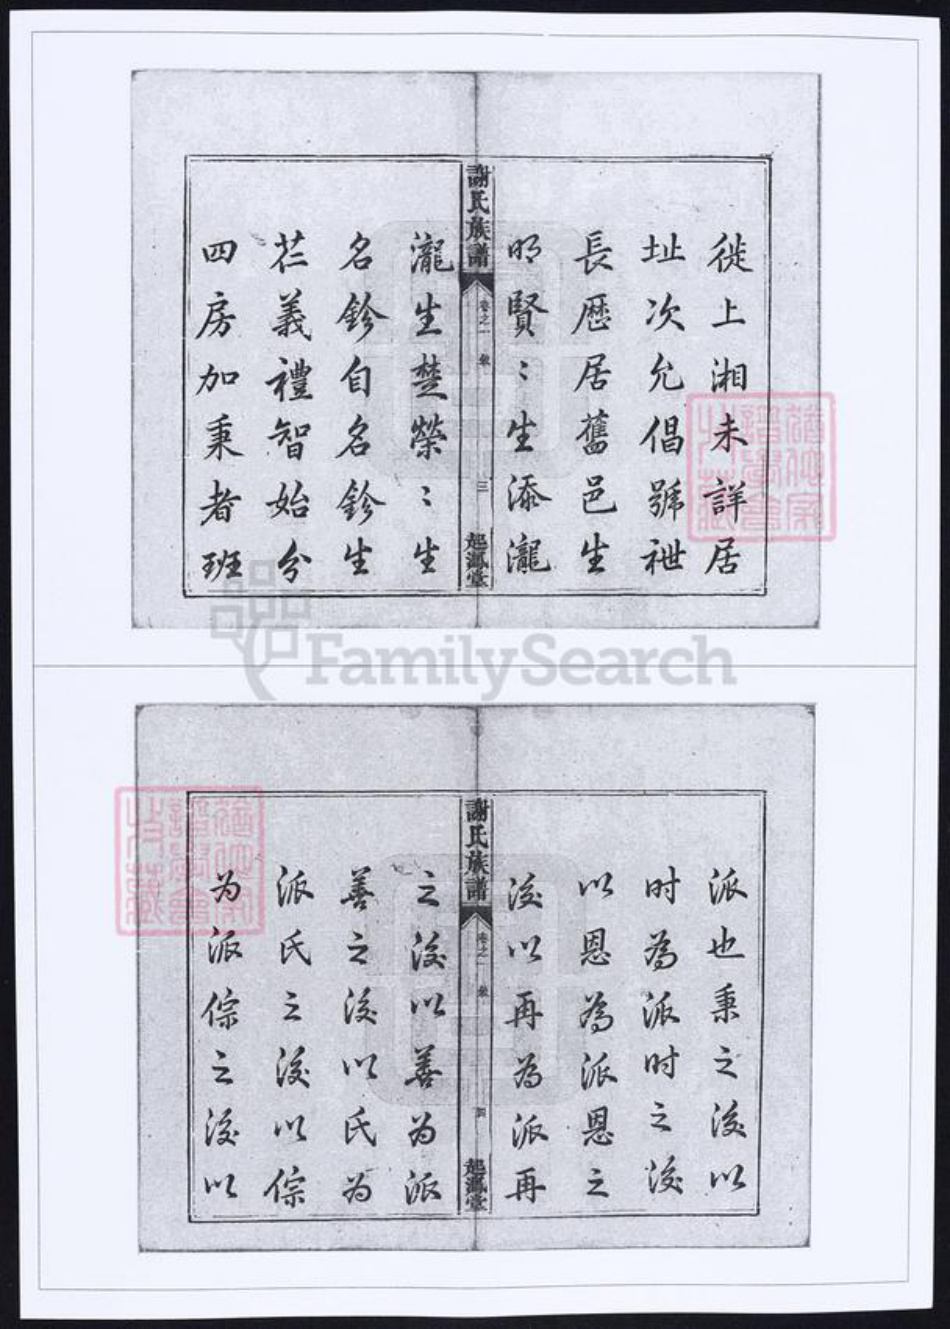 徙上湘未詳居
址次允倡號祂
長歷居舊邑生
明賢〻生添瀧
謝氏族譜
卷之一
三
起鳳堂
瀧生楚榮〻生
名鈐自名鈐生
芒義禮智始分
四房加秉者班
FamilySearch
派也秉之後以
时為派时之後
以恩為派恩之
後以再為派再
謝氏族譜
卷之一
四
起鳳堂
之後以善为派
善之後以氏为
派氏之後以倧
为派倧之後以